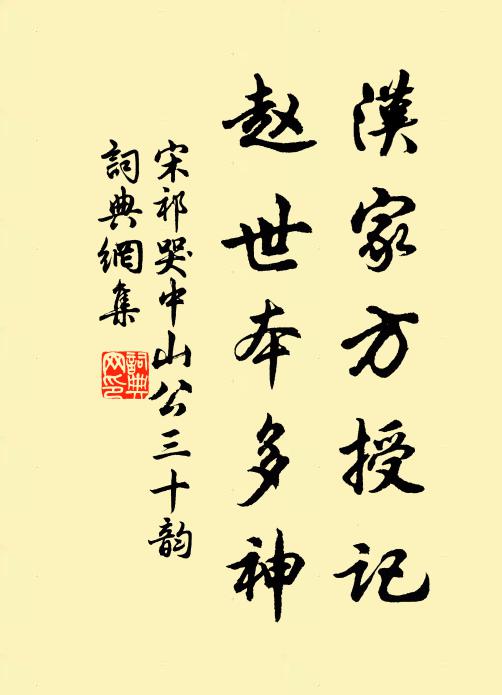 漢家方授記
赵世本多神
宋祁哭中山公三十韵
詞典網集
詞典